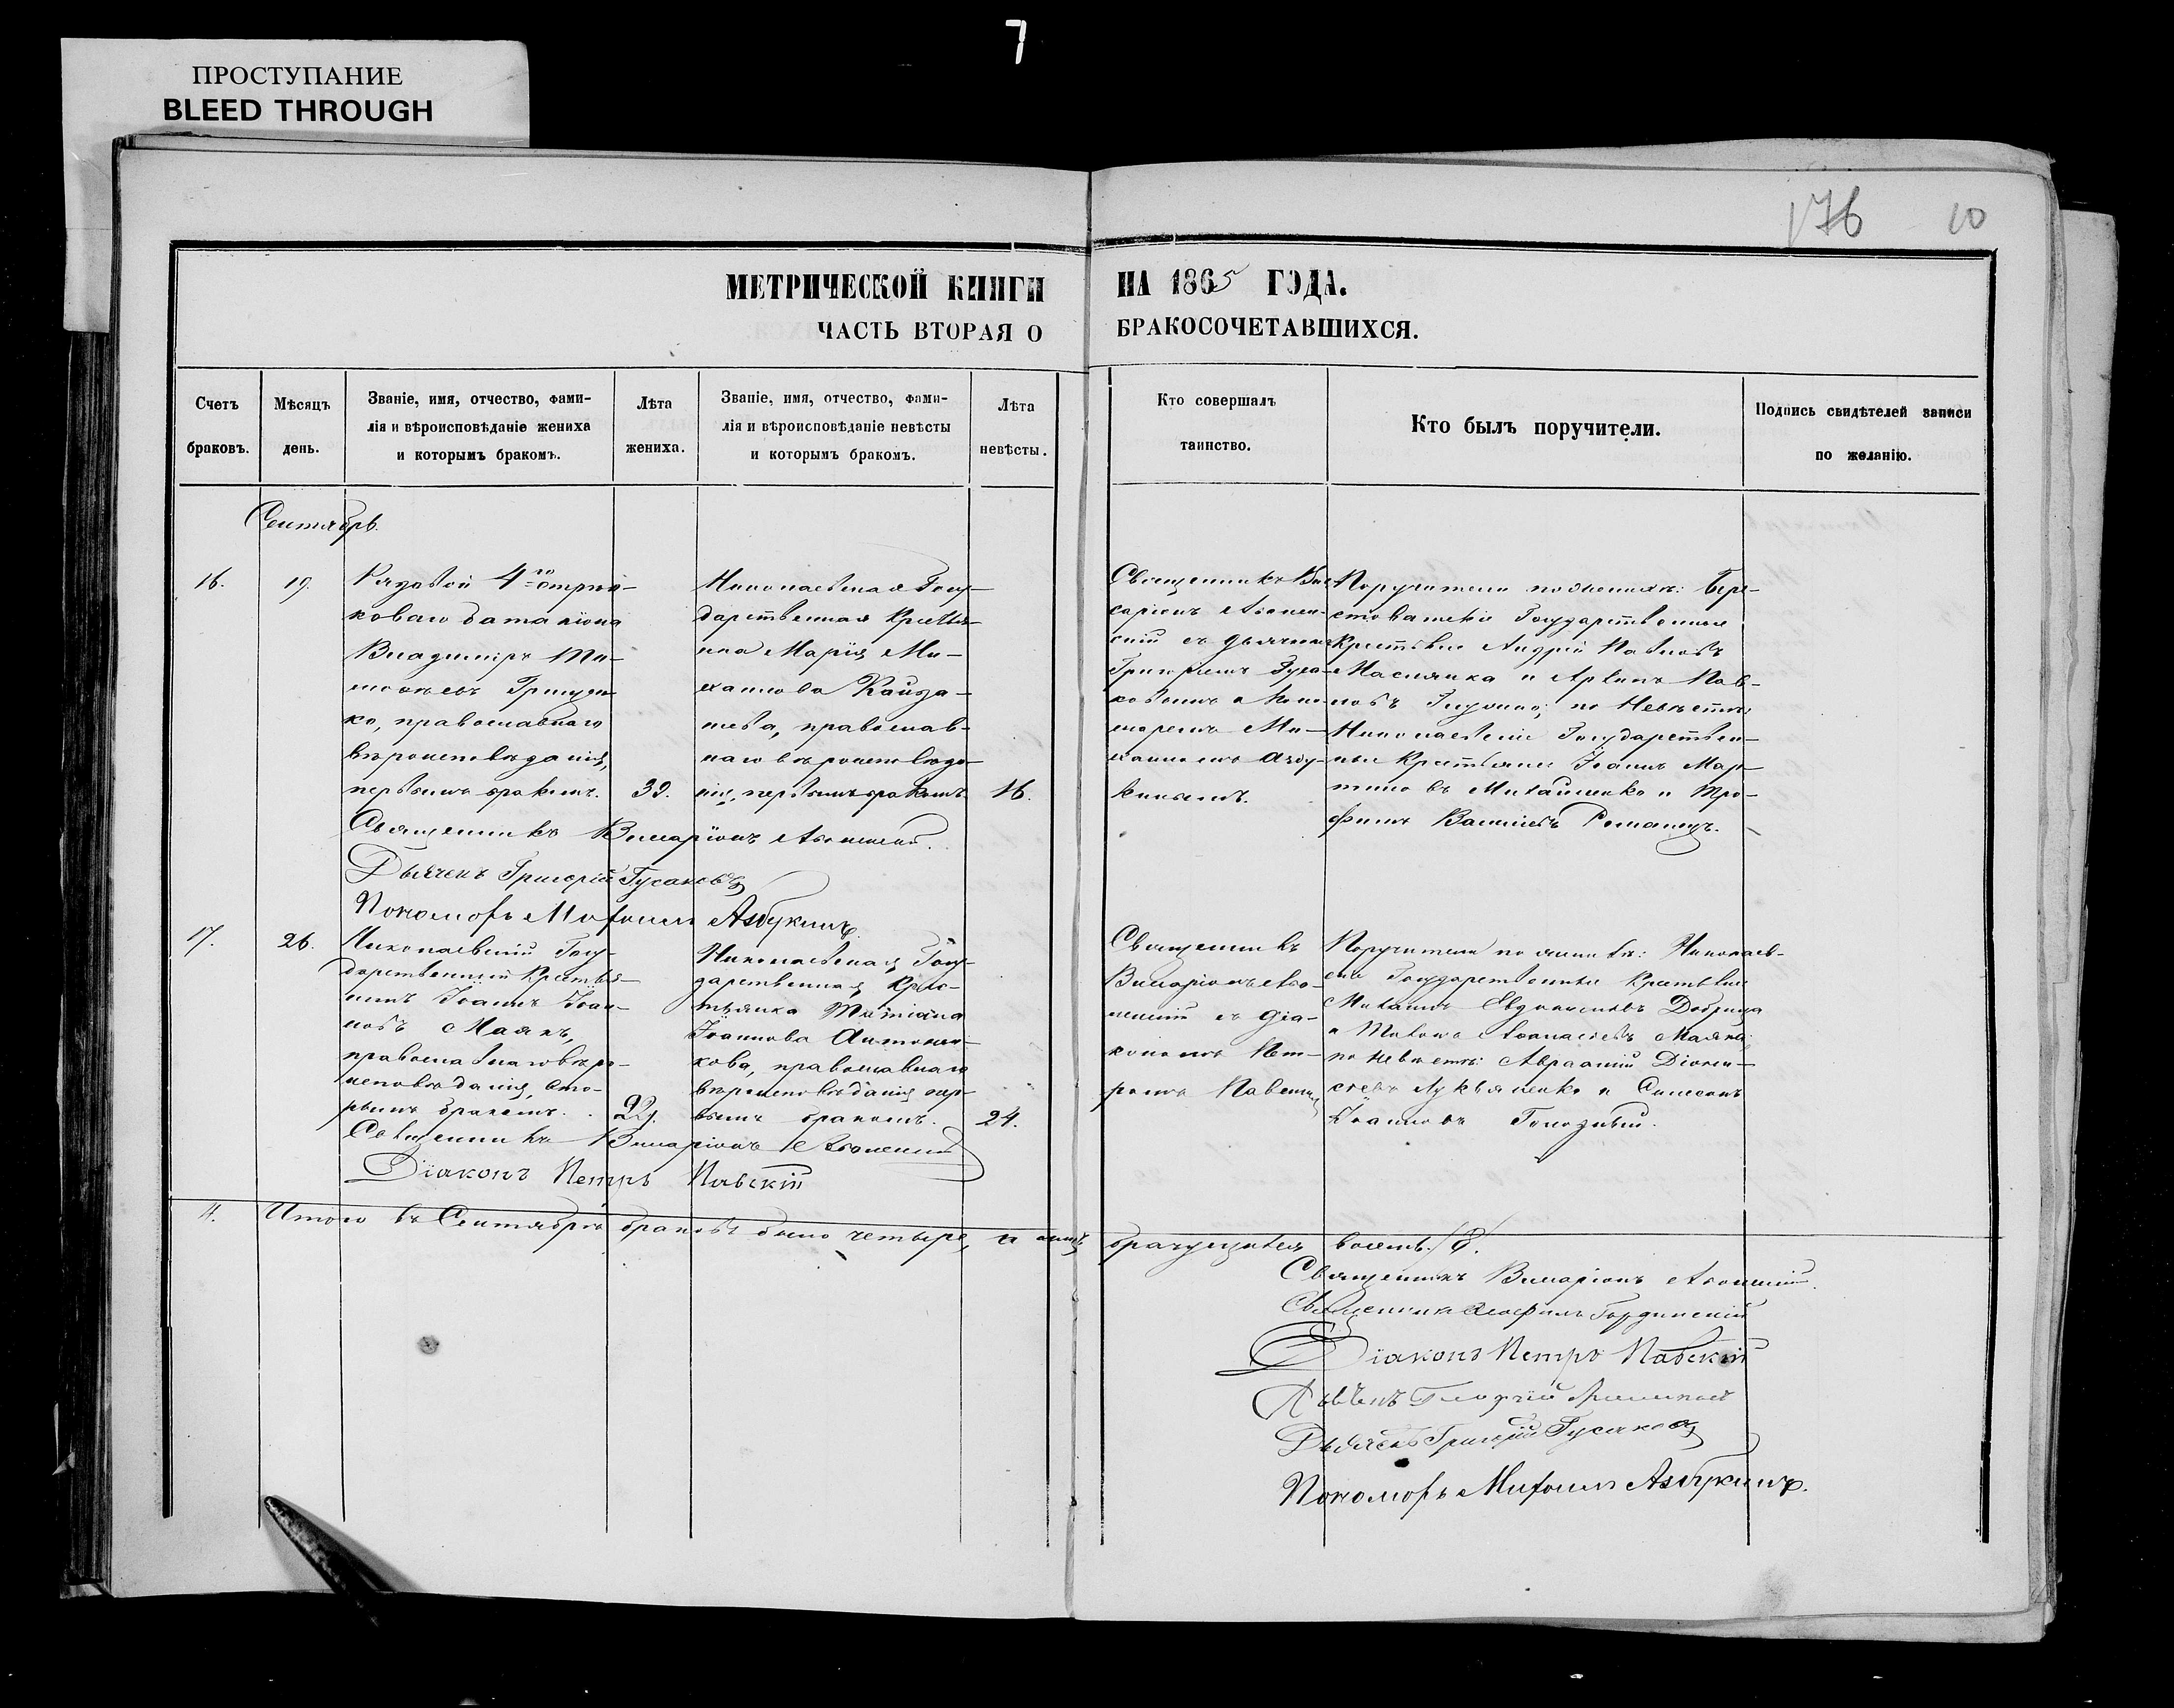 7
ПРОСТУПАНИЕ
BLEED THROUGH
176 10
МЕТРИЧЕСКОЙ КНИГИ НА 1865 ГОДА.
ЧАСТЬ ВТОРАЯ О БРАКОСОЧЕТАВШИХСЯ.
Счетъ
браковъ.
Мѣсяцъ
день.
Званіе, имя, отчество, фами-
лія и вѣроисповѣданіе жениха
и которымъ бракомъ.
Лѣта
жениха.
Званіе, имя, отчество, фами-
лія и вѣроисповѣданіе невѣсты
и которымъ бракомъ.
Лѣта
невѣсты.
Кто совершалъ
таинство.
Кто былъ поручители.
Подпись свидѣтелей записи
по желанію.
Сентябрь.
16.
19.
Рядовой 4го стрѣл-
коваго баталіона
Владиміръ Ти-
моѳеевъ Грицен-
ко, православнаго
вѣроисповѣданія,
первымъ бракомъ.
39.
Николаевская Госу-
дарственная Крестья-
нка Марія Ми-
хаилова
православ-
наго вѣроисповѣда-
нія, первымъ бракомъ.
16.
Священникъ Вис-
саріонъ Аѳонс-
кій съ дьячкомъ
Григоріемъ Гуса-
ковымъ и Поно-
маремъ Ми-
хаиломъ Азбу-
кинымъ.
Поручители по женихѣ: Бере-
стоватскіе Государственные
Крестьяне Андрей Павловъ
Маслянка и Павл-
овъ по Невѣстѣ:
Николаевскіе Государствен-
ные Крестьяне Іоаннъ Мар-
тиновъ Михайленко и Тро-
фимъ Васильевъ Романецъ.
Священникъ Виссаріонъ Аѳонскій.
Дьячекъ Григорій Гусаковъ
Пономарь Михаилъ Азбукинъ
17.
26.
Николаевскій Госу-
дарственный Крестья-
нинъ Іоаннъ Іоан-
новъ Маякъ,
православнаго вѣро-
исповѣданія, вто-
рымъ бракомъ.
29.
Николаевская Госу-
дарственная Крес-
тьянка Татіана
Іоаннова Антонен-
кова, православнаго
вѣроисповѣданія пер-
вымъ бракомъ.
24.
Священникъ
Виссаріонъ Аѳо-
нскій съ Діа-
кономъ Пет-
ромъ Павскимъ
Поручители по женихѣ: Николаев-
скіе Государственные Крестьяне
Михаилъ Евдокимовъ Добрица
и Аѳанасіевъ Маякъ;
по невѣстѣ: Авраамій Діонис-
іевъ Лукьяненко и Симеонъ
Іоанновъ Голодный.
Священникъ Виссаріонъ Аѳонскій
Діаконъ Петръ Павскій
4. Итого въ Сентябрѣ браковъ было четыре, а лицъ брачущихся восемь. /8/.
Священникъ Виссаріонъ Аѳонскій.
Священникъ Гординскій
Діаконъ Петръ Павскій
Дьячекъ Георгій
Дьячекъ Григорій Гусаковъ
Пономарь Михаилъ Азбукинъ.